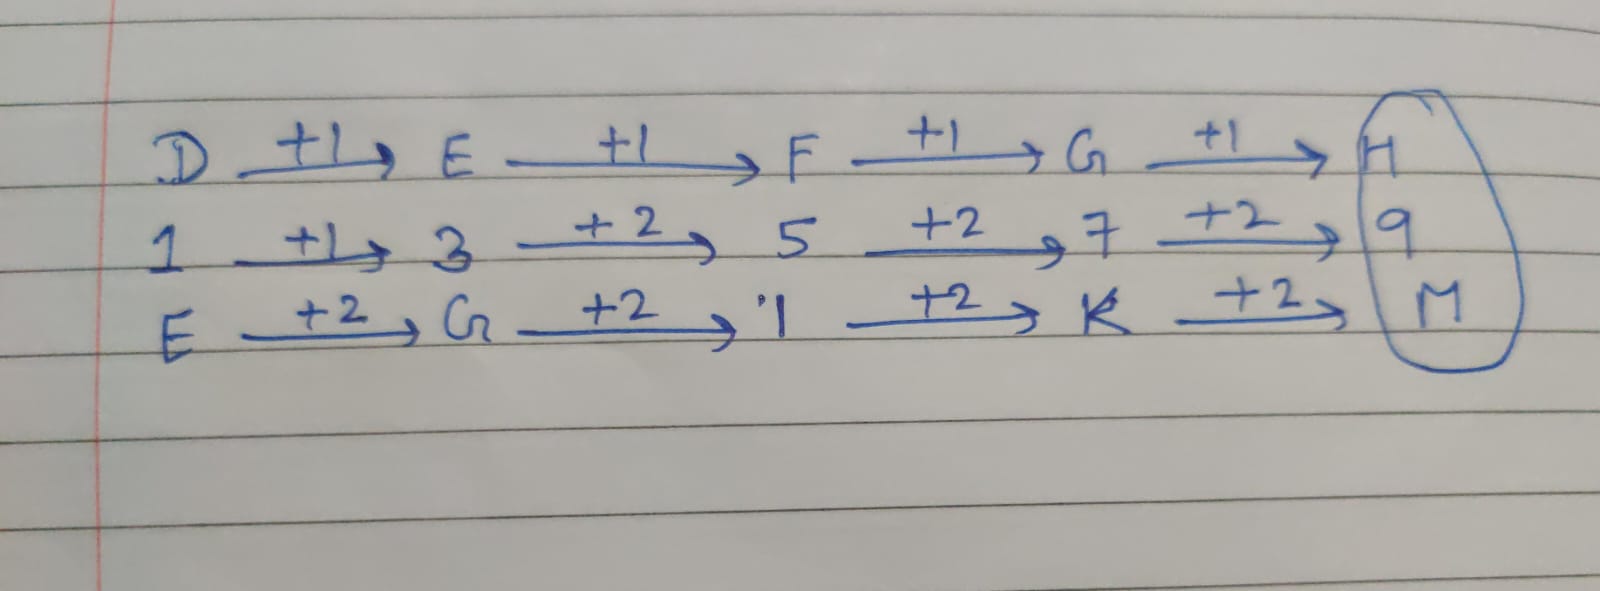 D +1→ E +1→ F +1→ G +1→ H
1 +1→ 3 +2→ 5 +2→ 7 +2→ 9
E +2→ G +2→ I +2→ K +2→ M